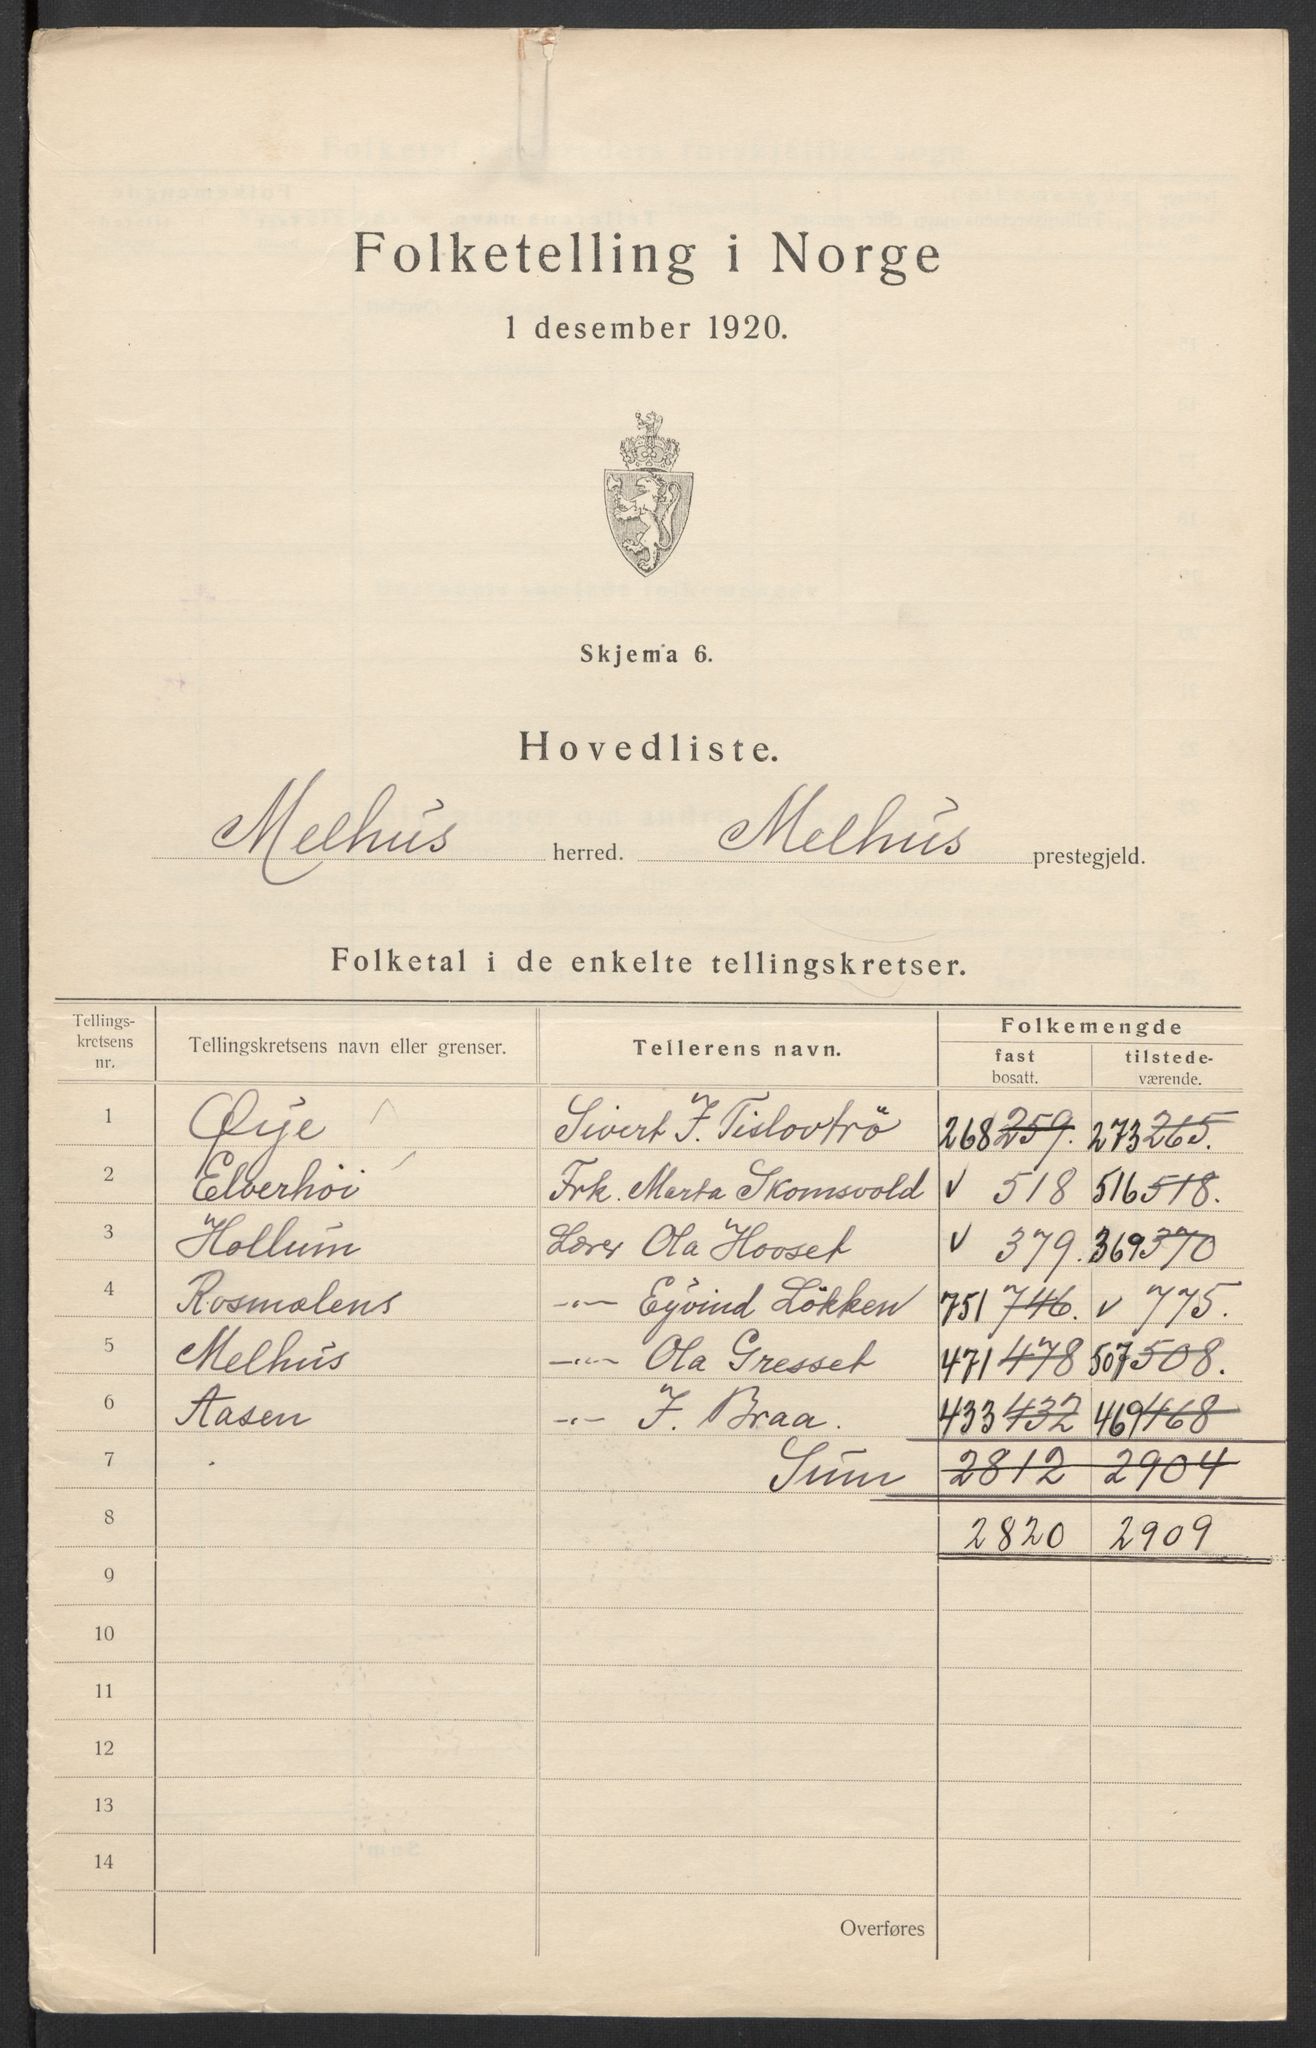 Folketelling i Norge
1 desember 1920.
Skjema 6.
Hovedliste.
Melhus herred. Melhus prestegjeld.
Folketal i de enkelte tellingskretser.
Tellings-kretsens nr. Tellingskretsens navn eller grenser. Tellerens navn. Folkemengde
fast bosatt. tilstede-værende.
1 Øye Sivert J. 268 259. 273 265.
2 Elverhöi Frk. Marta Skomsvold v 518 516 518.
3 Hollum Lærer Ola Hooset v 379. 369 370
4 Rosmælens -"- Eyvind Lökken 751 746. v 775.
5 Melhus -"- Ola Gresset 471 478 507 508.
6 Aasen -"- J. Braa. 433 432 469 468
7 Sum 2812 2904
8 2820 2909
9
10
11
12
13
14
Overføres